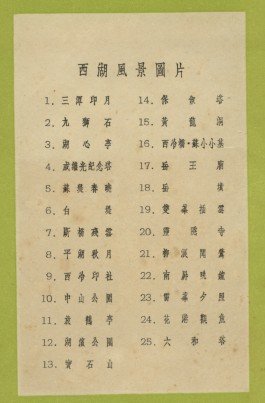 西湖風景圖片
1. 三潭印月
2. 九獅石
3. 湖心亭
4. 光紀念塔
5. 蘇堤春曉
6. 白堤
7. 斷橋殘雪
8. 平湖秋月
9. 西泠印社
10. 中山公園
11. 放鶴亭
12. 湖濱公園
13. 寶石山
14. 保俶塔
15. 黃龍洞
16. 西泠橋·蘇小小墓
17. 岳王廟
18. 岳墳
19. 雙峯插雲
20. 靈隱寺
21. 柳浪聞鶯
22. 南屏晚鐘
23. 雷峯夕照
24. 花港觀魚
25. 六和塔